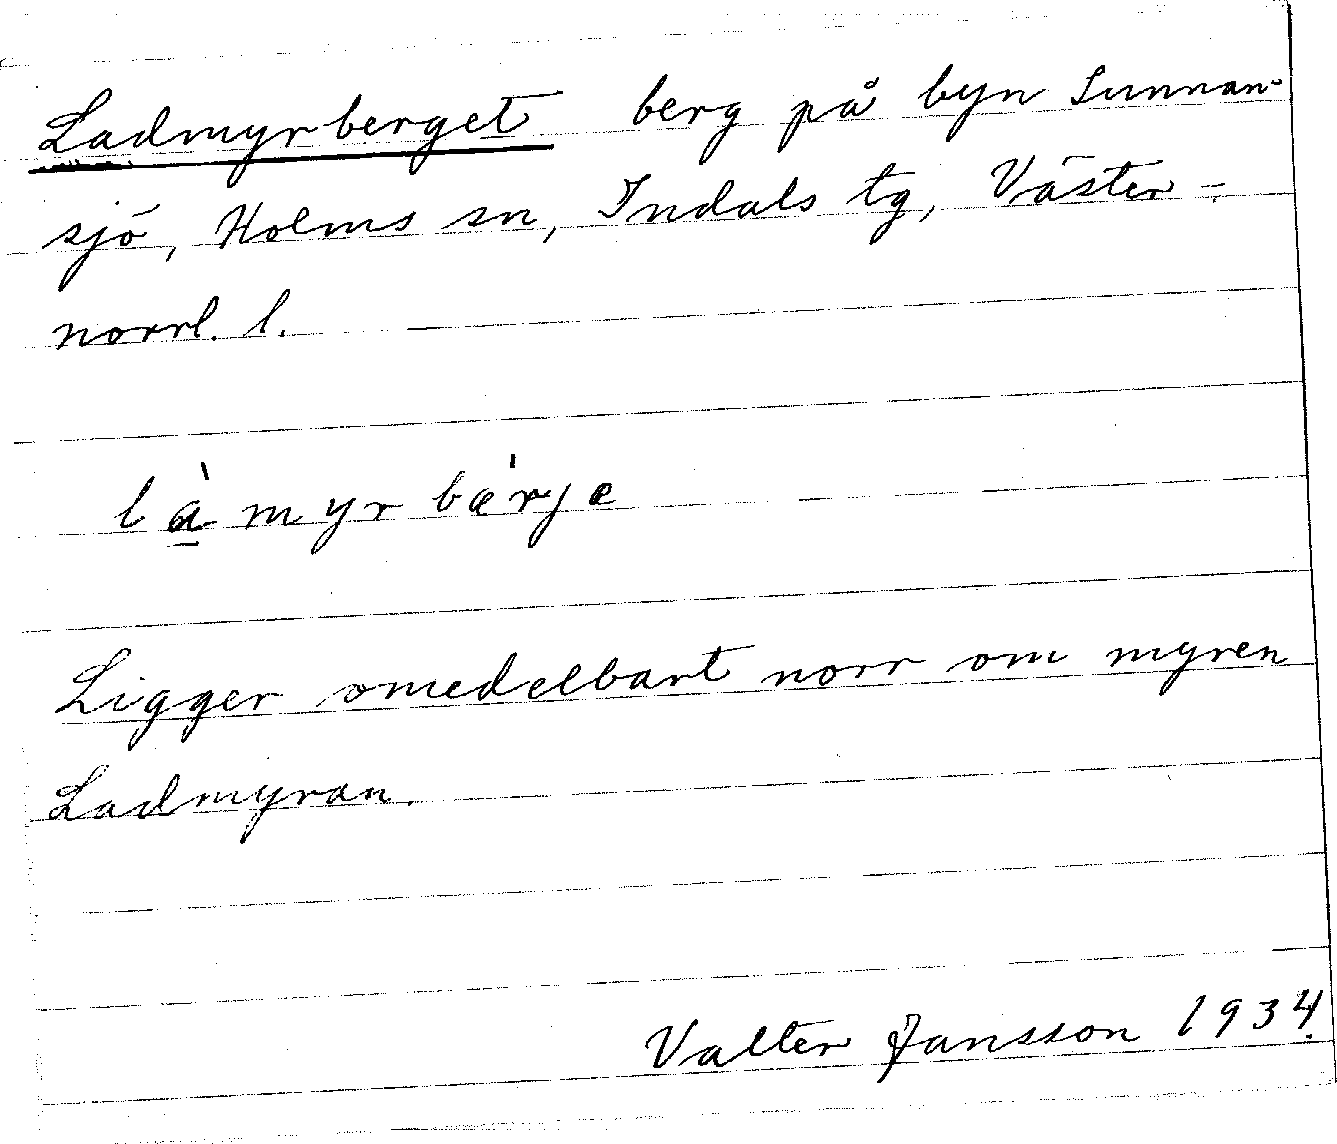 Ladmyrberget berg på byn Sunnan-
sjö, Holms sn, Indals tg, Väster-
norrl. l.
là̱myrbæ̀rje
Ligger omedelbart norr om myren
Ladmyran.
Valter Jansson 1934.